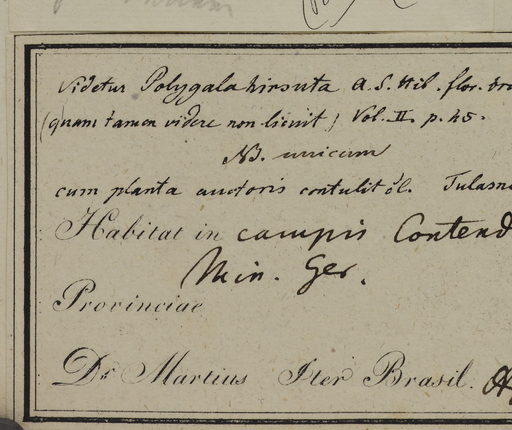 videtur Polygala hirsuta A. S. Hil. flor. bra
(quam tamen videre non licuit) Vol. II. p. 45.
NB. unicum
cum planta auctoris contulit cl. Tulasne
Habitat in campis Contend
Min. Ger.
Provinciae
Dr. Martius Iter Brasil.